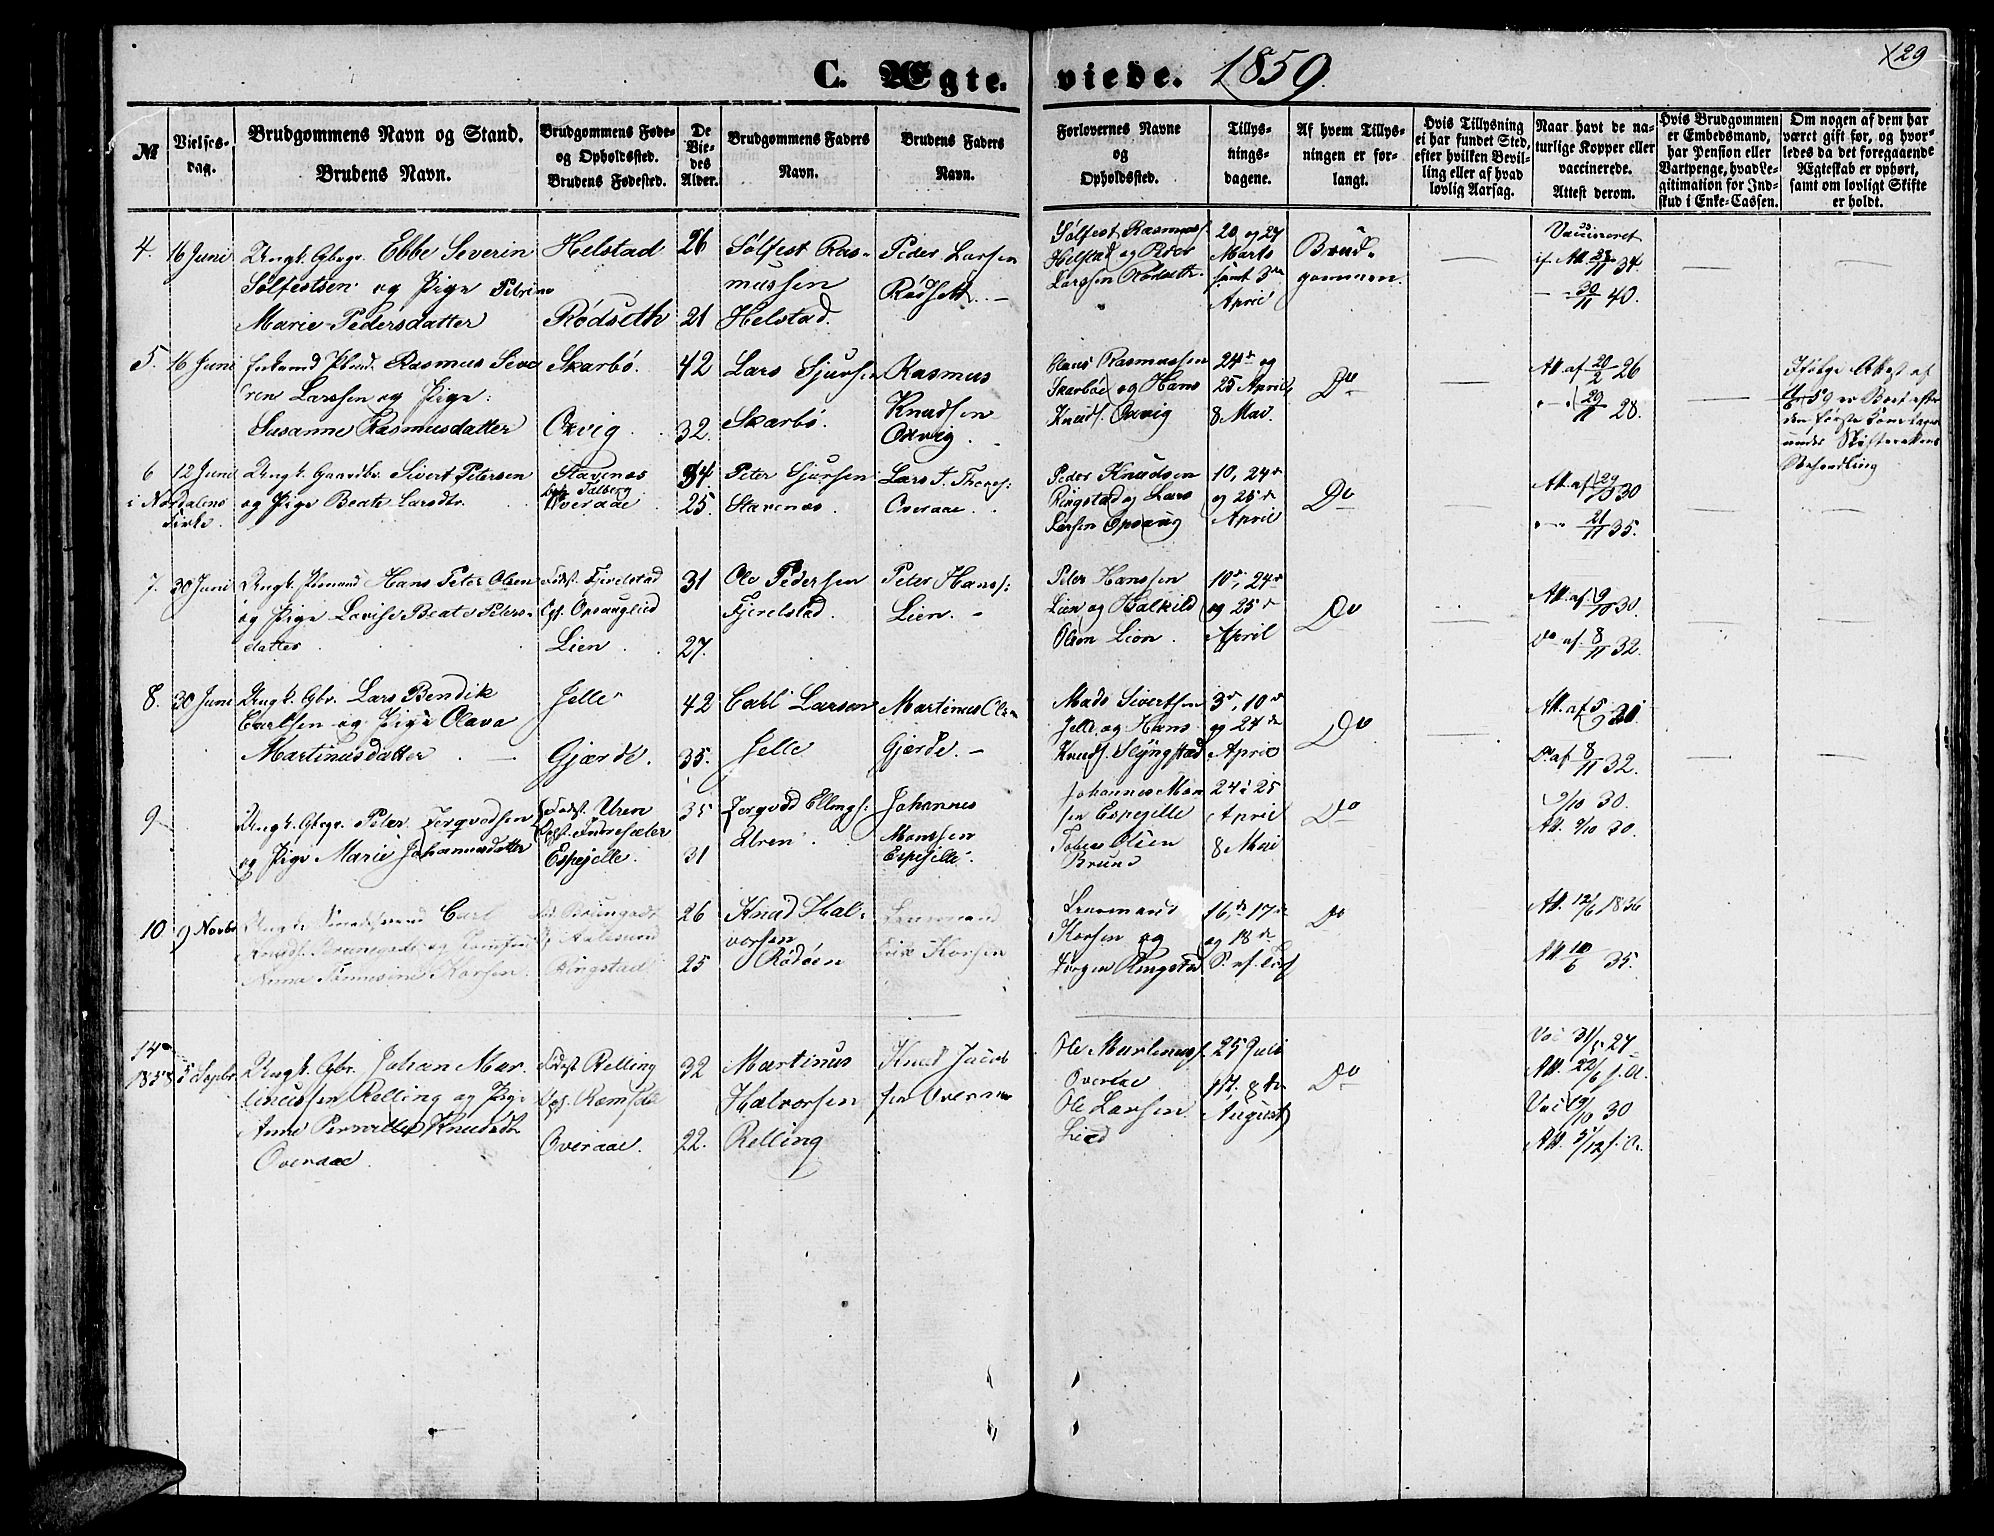 C. Ægte-viede. 1859.
129
№
Vielses-dag.
Brudgommens Navn og Stand.
Brudens Navn.
Brudgommens Føde- og Opholdssted.
Brudens Fødested.
De Vie-des Alder.
Brudgommens Faders Navn.
Brudens Faders Navn.
Forlovernes Navne og Opholdssted.
Tillys-nings-dagene.
Af hvem Tillys-ningen er for-langt.
Hvis Tillysning ei har fundet Sted, efter hvilken Bevil-ling eller af hvad lovlig Aarsag.
Naar havt de na-turlige Kopper eller vaccinerede.
Attest derom.
Hvis Brudgommen er Embedsmand, har Pension eller Vartpenge, hvad Le-gitimation for Ind-skud i Enke-Cassen.
Om nogen af dem har været gift før, og hvor-ledes da det foregaaende Ægteskab er ophørt, samt om lovligt Skifte er holdt.
4. 16 Juni Ungk. Gbrgr. Ebbe Severin
Sølfestsen og Pige Petrine
Marie Pedersdatter
Helstad
Rødseth
26
21
Sølfest Ras-
mussen
Helstad.
Peder Larsen
Rødseth. -
Sølfest Rasmuss.
Helstad og Peder
Larssen Rødseth.
20 og 24
Marts
samt 3die
April
Brud-
gommen.
Vaccineret
34.
30/11 40.
5. 16 Juni Enkemd Rasmus Seve
ren Larssen og Pige:
Susanne Rasmusdatter
Skarbø.
Oxvig
42
32.
Lars Sjursen
Skarbø.
Rasmus
Knudsen
Oxvig.
Claus Rasmussen
Skarbøe og Hans
Knuds. Oxvig
24de og
25 April,
8 Mai.
Do
Att. af 20/2 26
29/11 28.
Ifølge Attest af
59 er Boet efter
den første Kone tagen
under Skifterettens
Behandling
6 12 Juni
i Nordalens
Kirke.
Ungk. Gaardbr. Sivert Petersen
og Pige Beate Larsdtr.
Stavenæs
Talberg
Overaae
34.
25.
Peter Sjursen
Stavenæs.
Lars T.
Overaae.
Peder Knudsen
Ringstad og Lars
Larsen Opsaug
10, 24de
og 25de
April
Do
Att. af 29/10 30
21/11 35.
7. 30 Juni Ungk. Hans Peter Olsen
og Pige Lovise Beate Peters-
datter
Fødest. Fjørelstad
Ops. Opsauglied
Lien.
31
27.
Ole Pedersen
Fjørelstad.
Peter Hanss:
Lien. -
Peter Hanssen
Lien og Halkild
Olsen Lien.
10de, 24de
og 25de
April
Do
Att. af 9/10 30.
Do af. 8/11 32.
8. 30 Juni Ungk. Gbr. Lars Bendik
Carlsen og Pige Olava
Martinusdatter
Jelle
Gjærde.
42
35.
Carl Larsen
Jelle
Martinus Olsen
Gjerde. -
Mads Sivertsen
Jelle, og Hans
Knuds. Slyngstad
3de, 10de
og 24de
April
Do
Att. af 5/9 30
Do af 8/11 32.
9 Ungk. Gbrgr. Peter Zergvodsen
og Pige Marie Johannesdatter
Fødest. Uren
Ops. Indresæter
Espejelle.
35
31
Zergvod Ellings:
Uren.
Johannes
Monssen
Espejelle.
Johannes Mon
sen Espejelle
Tobias Olsen
Brund
24 25
April
8 Mai
Do
9/10 30.
Att. 9/10 30.
10. 9 Novbr Ungk. Carl
Knuds. og Jomfru
Anna Korsen.
Aalesund
Ringstad
26
25
Knud Hal-
vorsen
Rødøen
Lensmand
Erik Korsen
Lensmand
Korsen og
Jørgen Ringstad
16, de 17de
og 18de
S. af. Tref
Do
Att. 12/6 1836
Att. 10/6 35.
14
1858 5 Septbr. Ungk. Gbr. Johan Mar-
tinussen Relling og Pige
Anne Pernille Knudsdtr
Overaae.
Fødest Relling
Ops. Romsdal
Overaae.
32
22.
Martinus
Halvorsen
Relling
Knud Jacob
sen Overaae
Ole Martinuss.
Overaae
Ole Larsen
Lied
25 Juli
1ste, 8de
August
Do
Vac 31/5 27
Att. 22/6 s. A.
Vac 9/10 30
Att. 5/12 s. A.